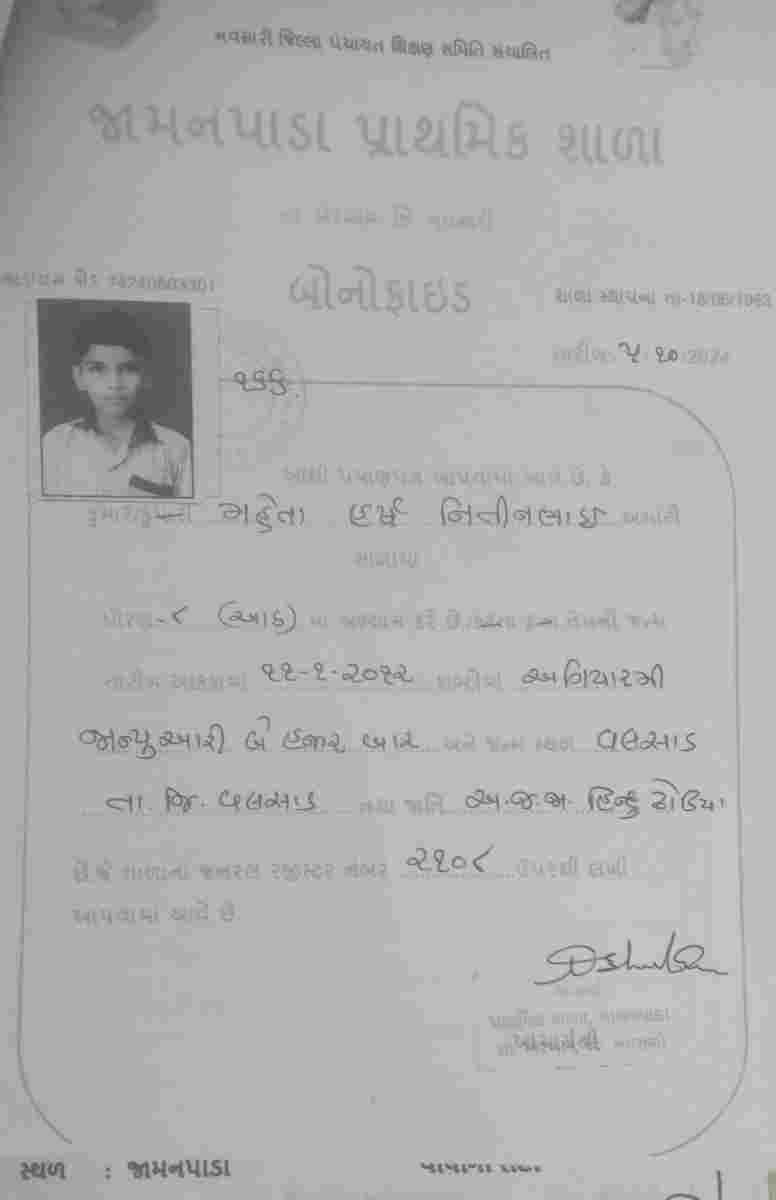 નવસારી જિલ્લા પંચાયત શિક્ષણ સમિતિ સંચાલિત
જામનપાડા પ્રાથમિક શાળા
તા ખેરગામ જિ નવસારી
બોનોફાઇડ
શાળા સ્થાપના તા-
તારીખ ૫ ૧૦ 2024
૧૬૬.
આથી પ્રમાણપત્ર આપવામાં આવે છે, કે
કુમાર/કુમારી મહેતા હર્ષ નિતીનભાઇ અમારી
શાળામાં
ધોરણ-૮ (આઠ) માં અભ્યાસ કરે છે. તેમની જન્મ
તારીખ આંકડામાં ૧૧-૧-૨૦૧૨ શબ્દોમાં અગિયારમી
જાન્યુઆરી બે હજાર બાર અને જન્મ સ્થળ વલસાડ
તા. જિ. વલસાડ તથા જાતિ અ.જ.જા. હિન્દુ ધોડિયા
છે. જે શાળાના જનરલ રજીસ્ટર નંબર ૨૧૦૮ ઉપરથી લખી
આપવામાં આવે છે.
પ્રાથમિક શાળા, જામનપાડા
સ્થળ : જામનપાડા